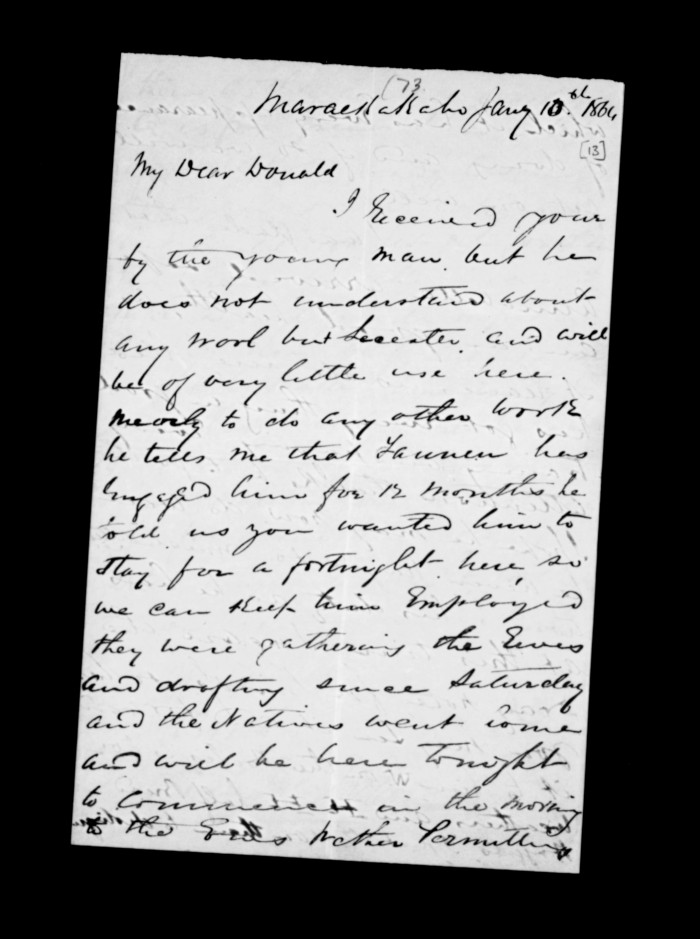 (73
Maraekakaho Jany 10th 1864
[13]
My Dear Donald
I Received your
by the young man but he
does not understand about
any work but and will
be of very little use here.
to do any other work
he tells me that has
Engaged him for 12 months he
told us you wanted him to
stay for a fortnight here so
we can keep him Employed
they were gathering the Ewes
and drafting since Saturday
and the Natives went home
and will be here Tonight
to commence in the morning
the Ewes Wether Permitting